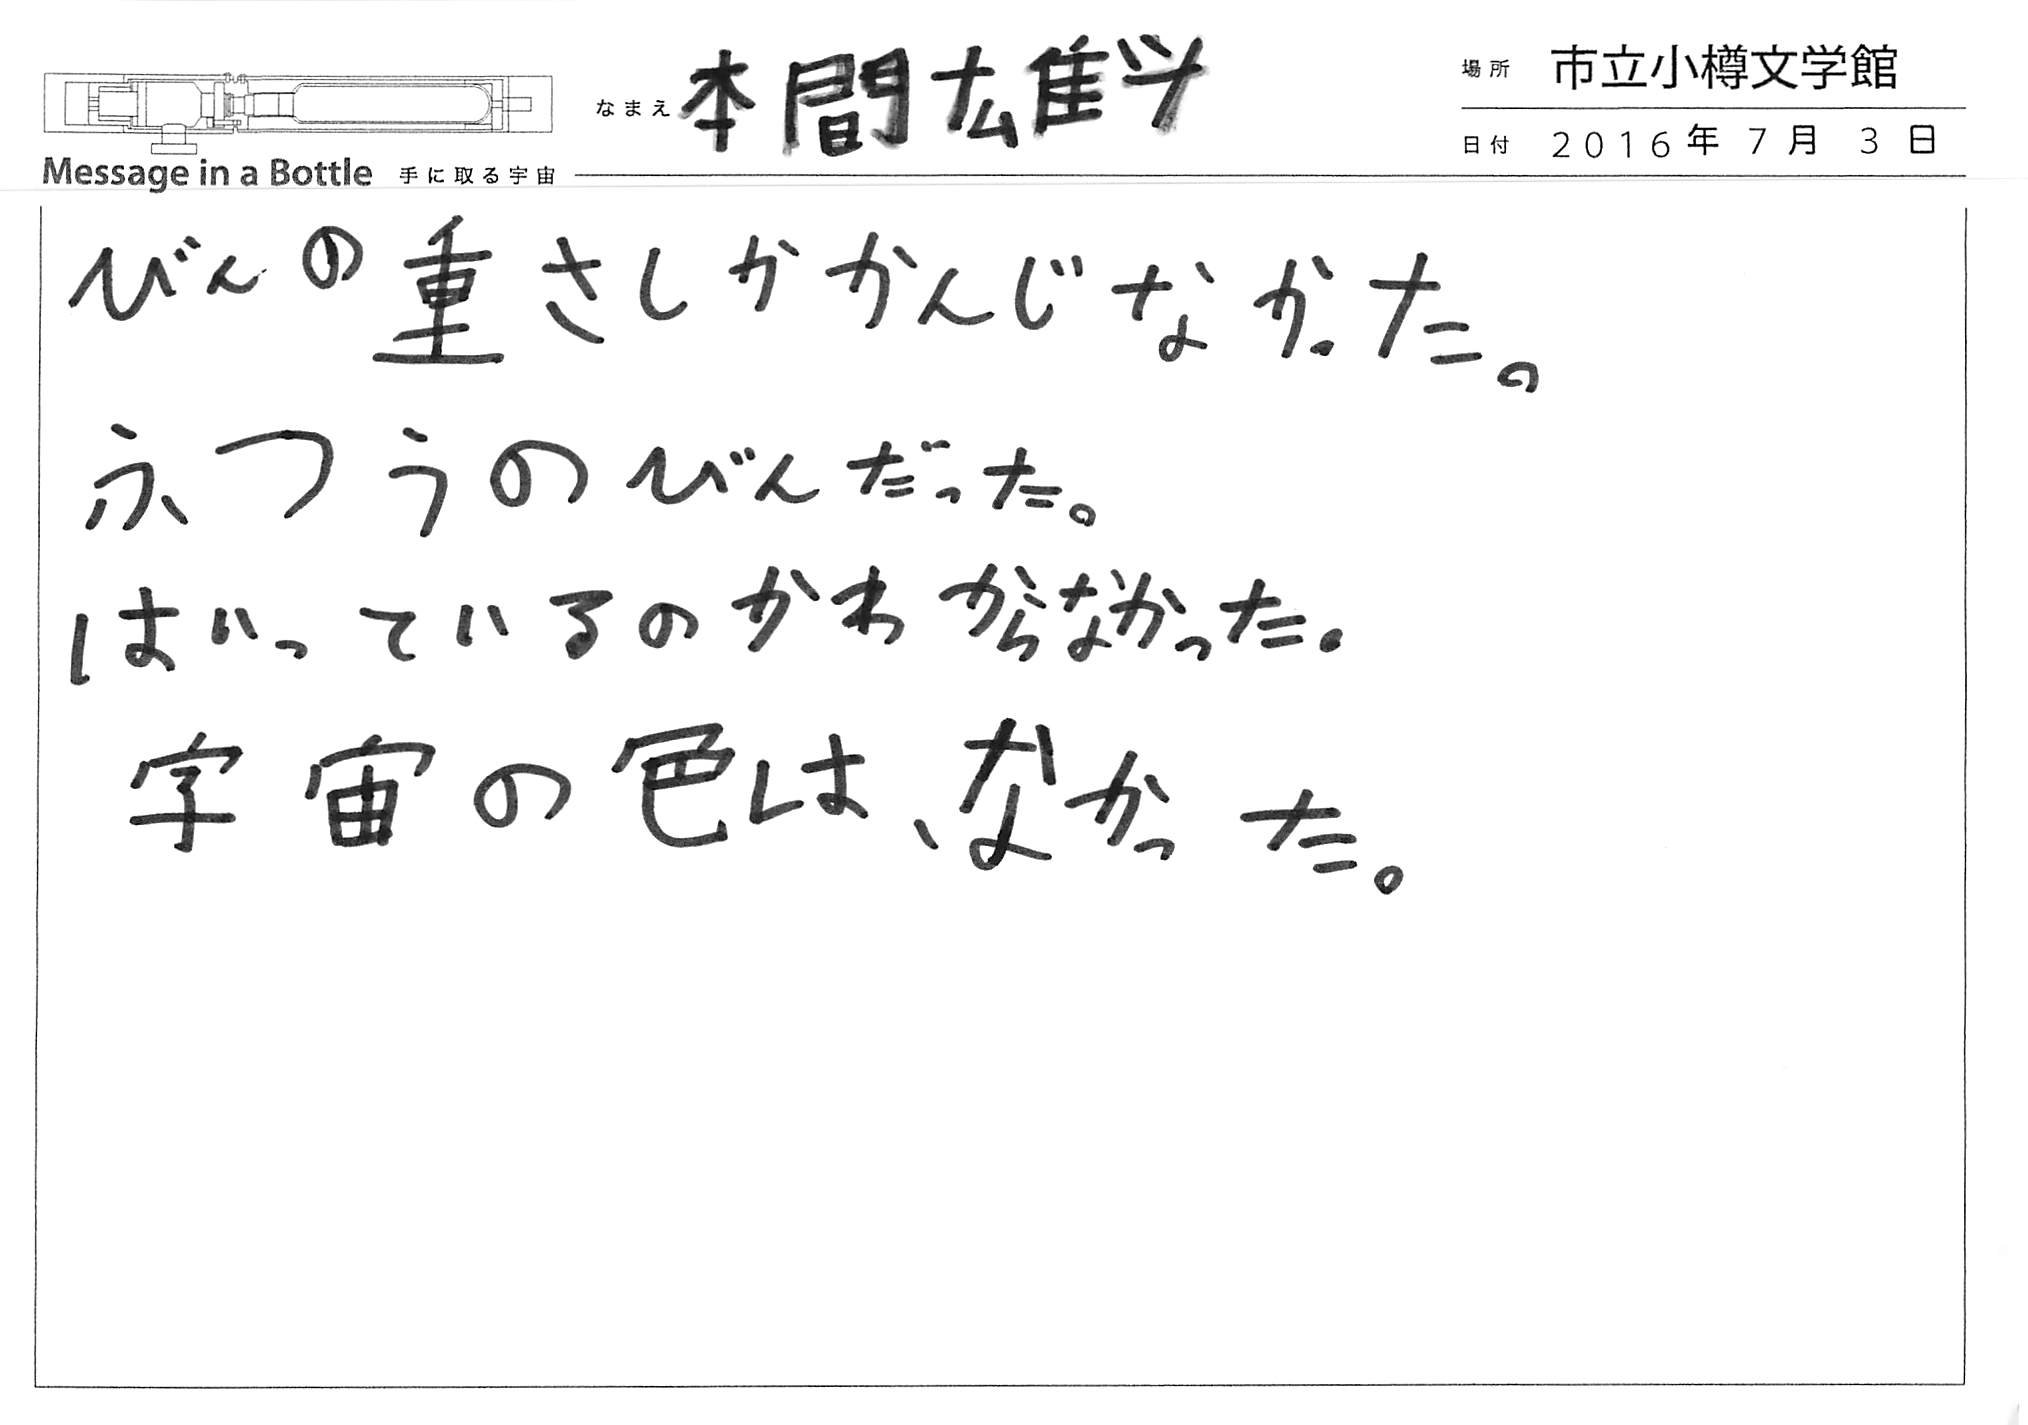 なまえ 本間雄斗
場所 市立小樽文学館
日付 2016年7月3日
Message in a Bottle 手に取る宇宙
びんの重さしかかんじなかった。
ふつうのびんだった。
はいっているのかわからなかった。
宇宙の色は、なかった。